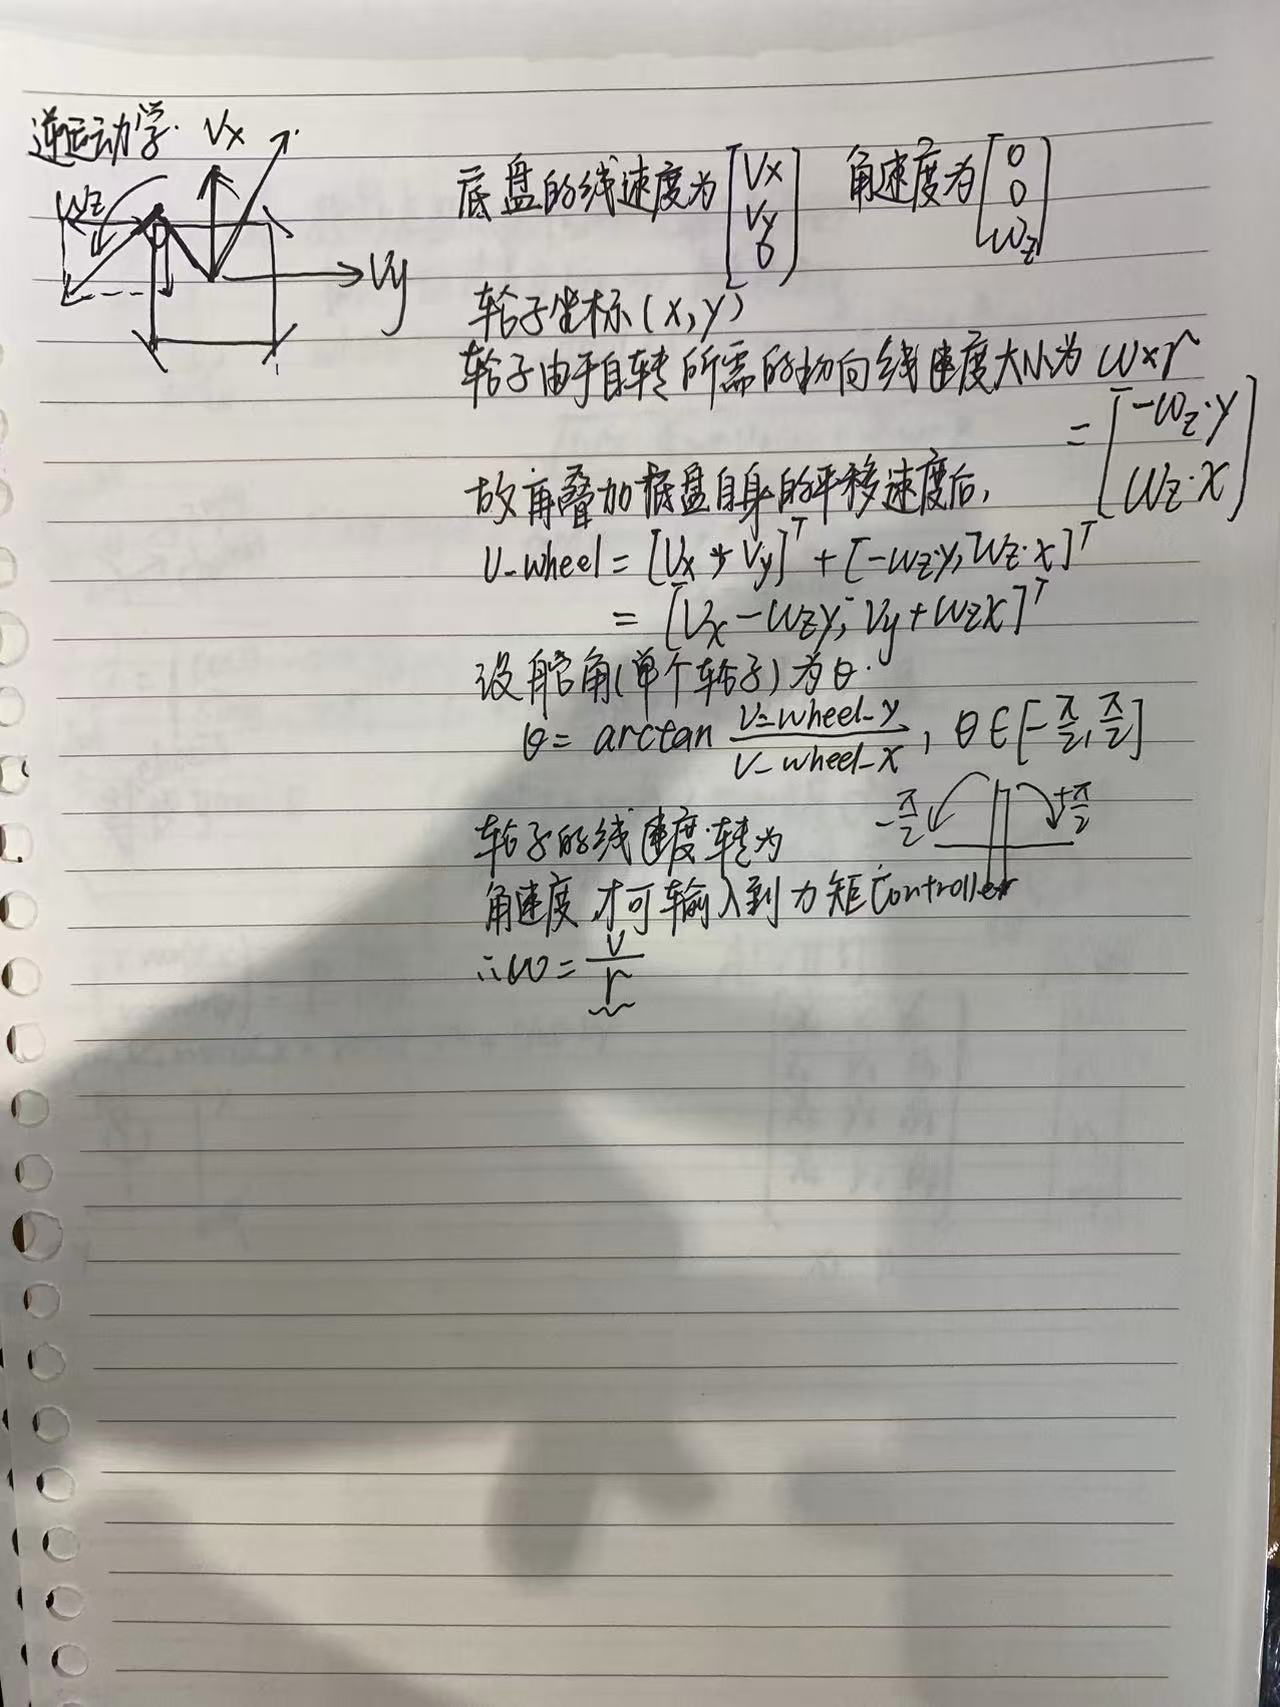 逆运动学. Vx
ωz
Vy
底盘的线速度为 [Vx Vy 0] 角速度为 [0 0 ωz]
轮子坐标(x,y)
轮子由于自转所需的切向线速度大小为 ω×r
= [-ωz·y ωz·x]
故再叠加底盘自身的平移速度后,
V_wheel = [Vx, Vy]ᵀ + [-ωz·y, ωz·x]ᵀ
= [Vx - ωzy, Vy + ωzx]ᵀ
设舵角(单个轮子)为θ.
θ = arctan V_wheel_y / V_wheel_x, θ∈[-π/2, π/2]
-π/2 +π/2
轮子的线速度转为
角速度,才可输入到力矩Controller
∴ω = v/r